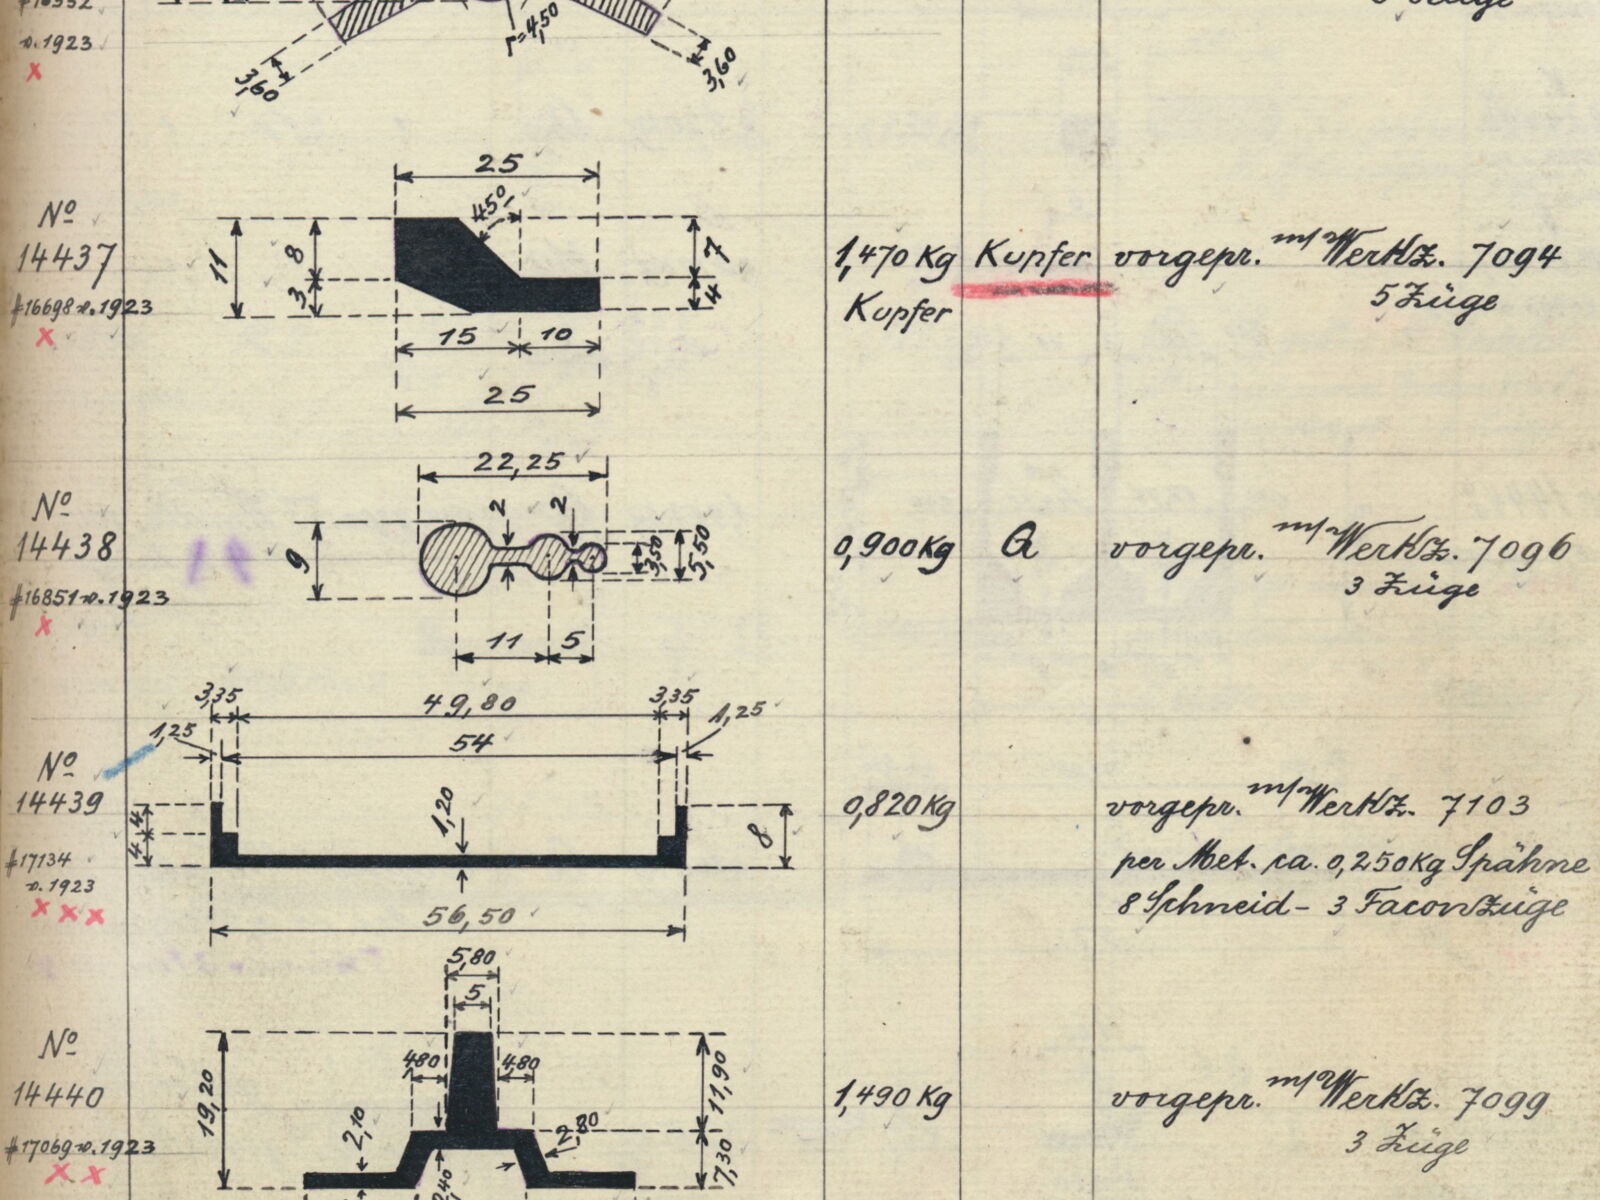 v. 1923
x
3,60
r=4,50
3,60
25
45°
Nº
14437
#16698 v. 1923
x
11
8
3
7
4
15
10
25
1,470 Kg
Kupfer
Kupfer
vorgepr. m/ Werkz. 7094
5 Züge
22,25
Nº
14438
#16851 v. 1923
x
9
2
2
3,50
5,50
11
5
0,900 Kg
a
vorgepr. m/ Werkz. 7096
3 Züge
3,35
49,80
3,35
1,25
54
1,25
Nº
14439
#17134
v. 1923
x x x
4
4
1,20
8
56,50
0,820 Kg
vorgepr. m/ Werkz. 7103
per Met. ca. 0,250 Kg Spähne
8 Schneid- 3 Faconzüge
5,80
5
Nº
14440
#17069 v. 1923
x x
19,20
4,80
4,80
11,90
2,10
2,80
7,30
1,490 Kg
vorgepr. m/ Werkz. 7099
3 Züge